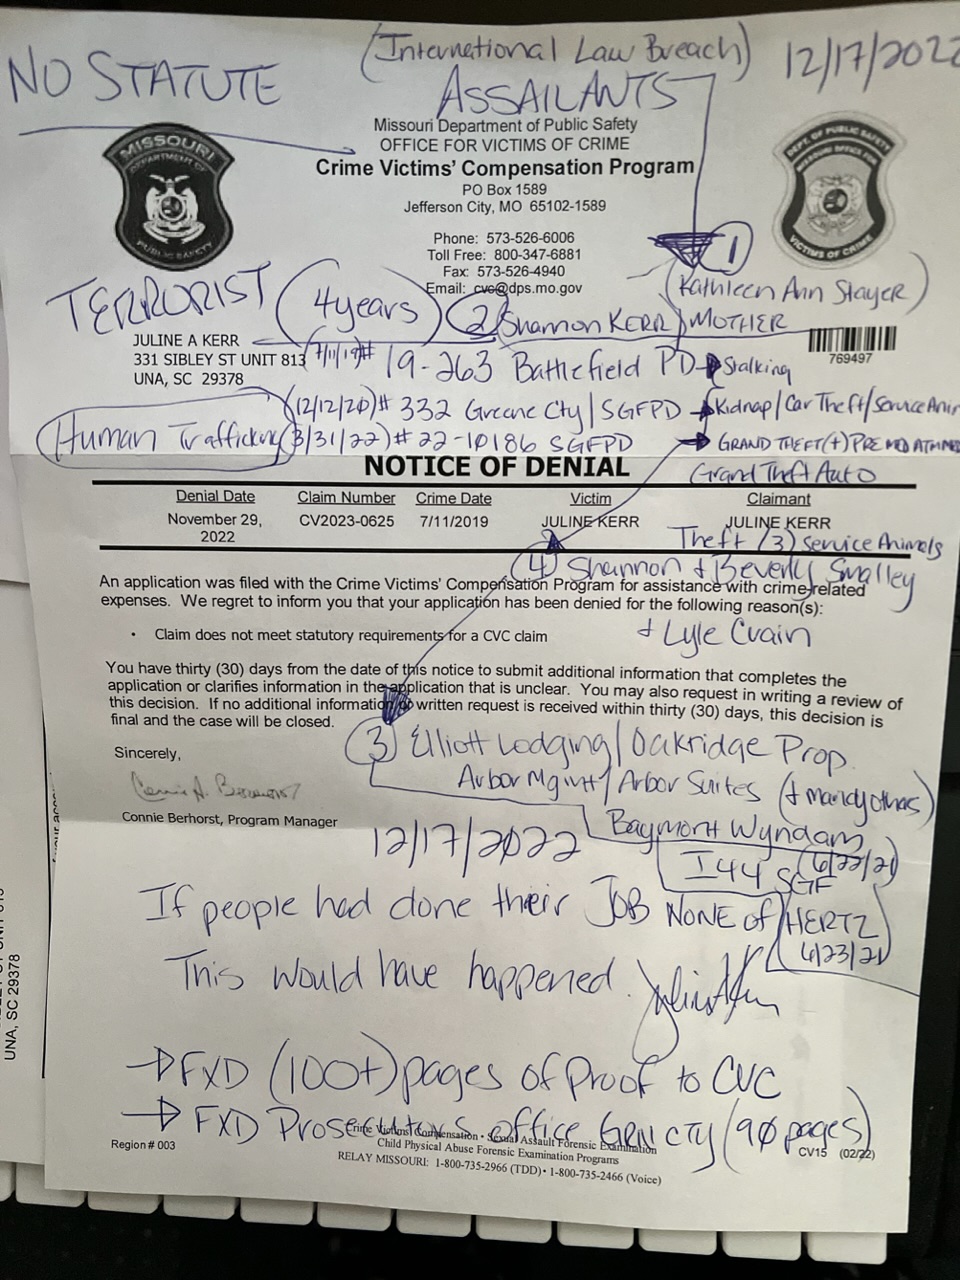 (International Law Breach) 12/17/2022
NO STATUTE
ASSAILANTS
Missouri Department of Public Safety
OFFICE FOR VICTIMS OF CRIME
Crime Victims' Compensation Program
PO Box 1589
Jefferson City, MO 65102-1589
Phone: 573-526-6006
Toll Free: 800-347-6881
Fax: 573-526-4940
Email: cvc@dps.mo.gov
MISSOURI
DEPARTMENT OF
PUBLIC SAFETY
DEPT. OF PUBLIC SAFETY
MISSOURI OFFICE FOR
VICTIMS OF CRIME
1
(Kathleen Ann Slayer)
TERRORIST (4 years) (2) Shannon KERR) MOTHER
JULINE A KERR
331 SIBLEY ST UNIT 813
UNA, SC 29378
769497
(7/11/19)# 19-263 Battlefield PD → Stalking
(12/12/20)# 332 Greene Cty/SGFPD → Kidnap/Car Theft/Service Anim
(Human Trafficking) (3/31/22)# 22-10186 SGFPD → GRAND THEFT (+) PREMED
NOTICE OF DENIAL
Grand Theft Auto
Denial Date Claim Number Crime Date Victim Claimant
November 29, 2022 CV2023-0625 7/11/2019 JULINE KERR JULINE KERR
Theft (3) Service Animals
(4) Shannon + Beverly Smalley
An application was filed with the Crime Victims' Compensation Program for assistance with crime-related
expenses. We regret to inform you that your application has been denied for the following reason(s):
• Claim does not meet statutory requirements for a CVC claim
+ Lyle Cvain
You have thirty (30) days from the date of this notice to submit additional information that completes the
application or clarifies information in the application that is unclear. You may also request in writing a review of
this decision. If no additional information or written request is received within thirty (30) days, this decision is
final and the case will be closed.
Sincerely,
(3) Elliott Lodging/Oakridge Prop.
Arbor Mgmt/Arbor Suites (+ many others)
Connie Berhorst, Program Manager
Baymont Wyndam
12/17/2022
I44 SGF (6/22/21)
If people had done their JOB NONE OF
HERTZ
6/23/21
This would have happened.
→ FXD (100+) pages of Proof to CVC
→ FXD Prosecutors office GRN CTY (90 pages)
Crime Victims' Compensation • Sexual Assault Forensic Examination
Child Physical Abuse Forensic Examination Programs
RELAY MISSOURI: 1-800-735-2966 (TDD) • 1-800-735-2466 (Voice)
Region # 003
CV15 (02/22)
UNA, SC 29378